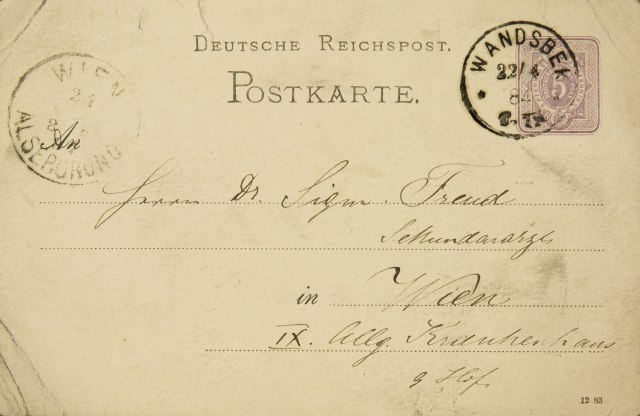 DEUTSCHE REICHSPOST.
POSTKARTE.
WANDSBEK
22/4
84
5
WIEN
24
ALSERGRUND
An
Herrn Dr. Sigm. Freud
Sekundararzt
in Wien
IX. Allg. Krankenhaus
9 Hof
12 83